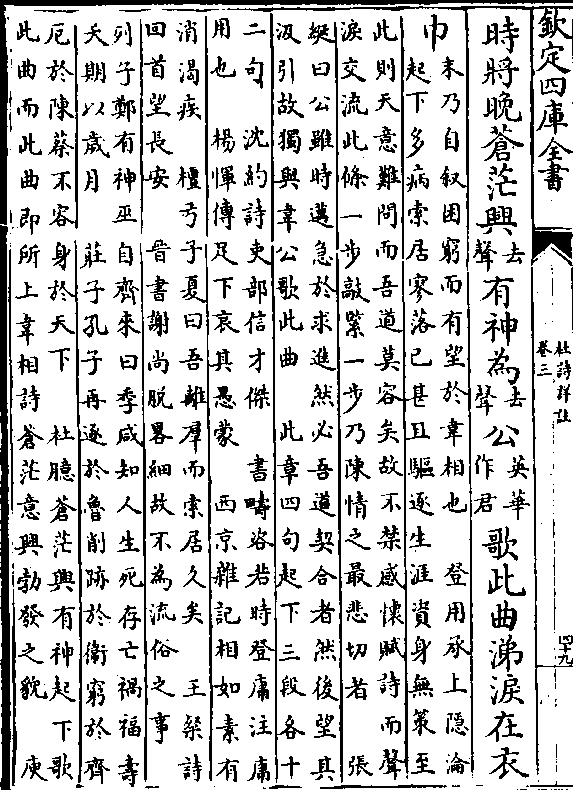 欽定四庫全書
杜詩詳註
卷三
四十九
時將晚蒼茫興去聲有神為去聲公英華作君歌此曲涕淚在衣
巾
末乃自叙困窮而有望於韋相也 登用承上隱淪
起下多病索居寥落已甚且驅逐生涯資身無策至
此則天意難問而吾道莫容矣故不禁感懷賦詩而聲
淚交流此條一步敲緊一步乃陳情之最悲切者 張
綖曰公雖時邁急於求進然必吾道契合者然後望其
汲引故獨與韋公歌此曲 此章四句起下三段各十
二句 沈約詩吏部信才傑 書疇咨若時登庸注庸
用也 楊惲傳足下哀其愚蒙 西京雜記相如素有
消渴疾 檀弓子夏曰吾離羣而索居久矣 王粲詩
回首望長安 晉書謝尚脱畧細故不為流俗之事
列子鄭有神巫自齊來曰季咸知人生死存亡禍福壽
夭期以歲月 莊子孔子再逐於魯削跡於衛窮於齊
厄於陳蔡不容身於天下 杜臆蒼茫興有神起下歌
此曲而此曲即所上韋相詩蒼茫意興勃發之貌 庾